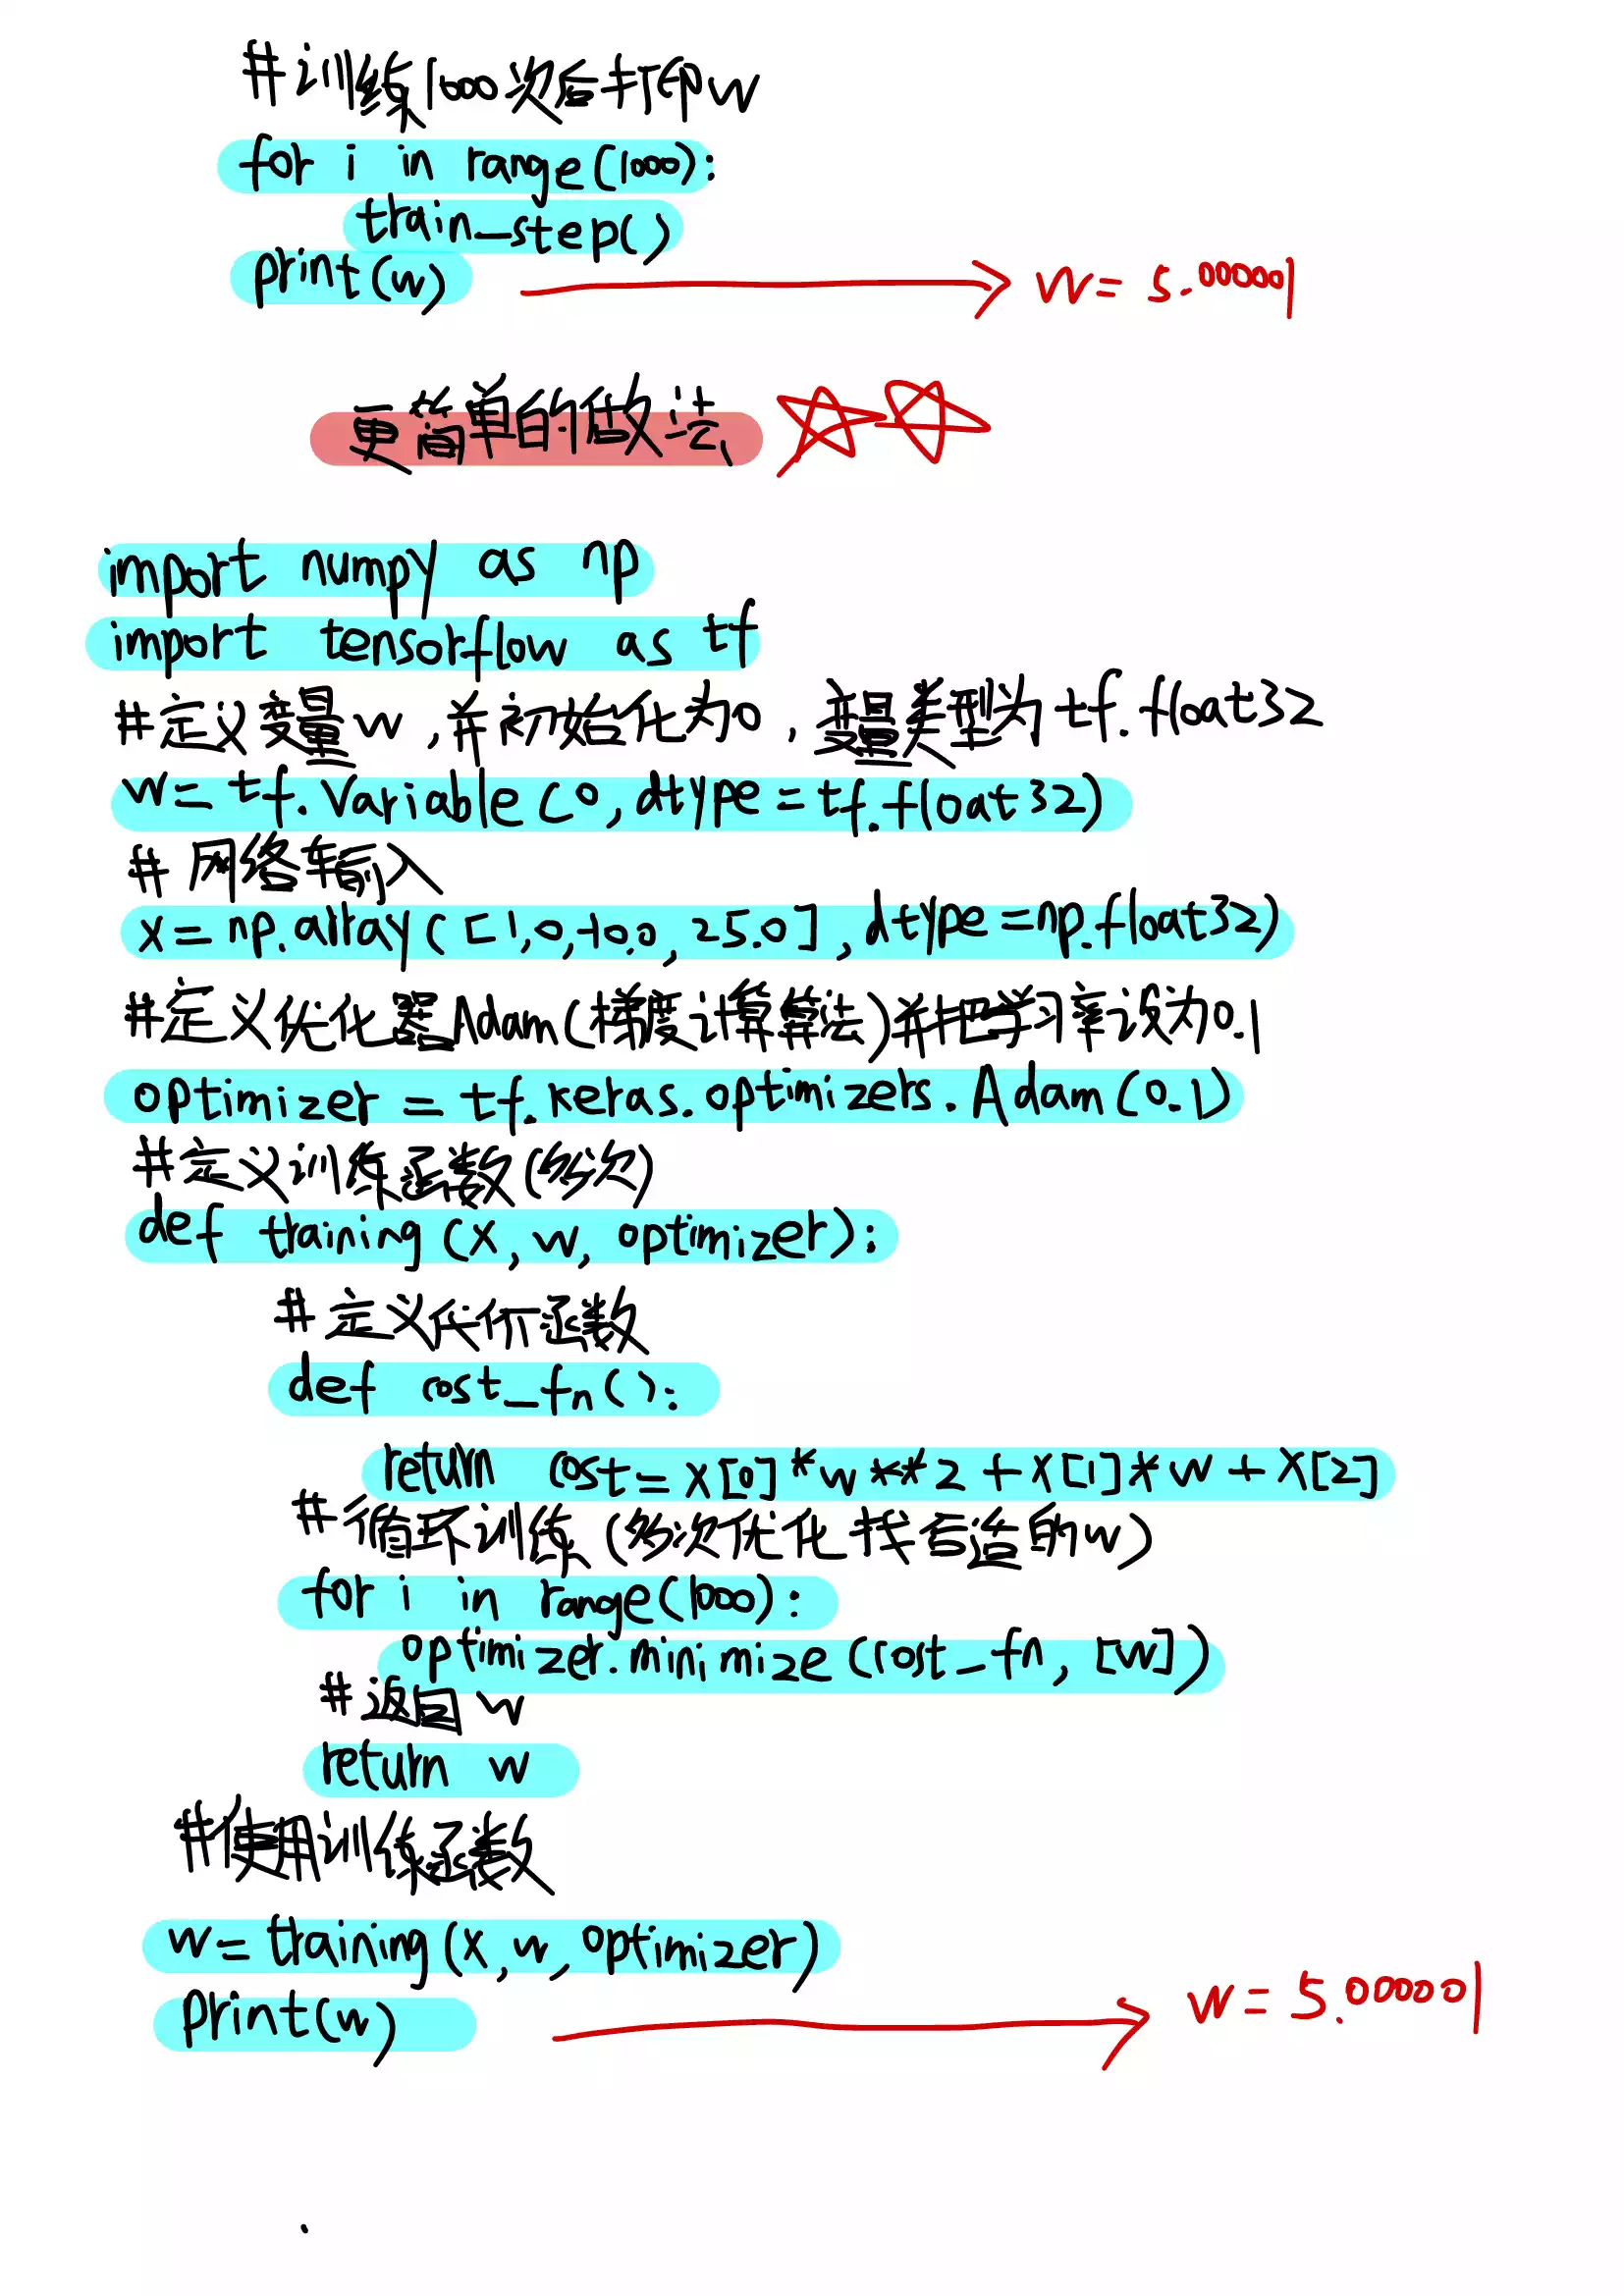 #训练1000次后打印w
for i in range(1000):
train_step()
print(w)
w = 5.000001
更简单的做法
import numpy as np
import tensorflow as tf
#定义变量w,并初始化为0,变量类型为tf.float32
w = tf.Variable(0, dtype=tf.float32)
# 网络输入
x = np.array([1,0,-10.0, 25.0], dtype=np.float32)
#定义优化器Adam(梯度计算算法)并把学习率设为0.1
optimizer = tf.keras.optimizers.Adam(0.1)
#定义训练函数(多次)
def training (x, w, optimizer):
# 定义代价函数
def cost_fn():
return cost = x[0]*w**2 + x[1]*w + x[2]
#循环训练(多次优化找合适的w)
for i in range(1000):
optimizer.minimize(cost_fn, [w])
#返回w
return w
#使用训练函数
w = training(x, w, optimizer)
print(w)
w = 5.000001